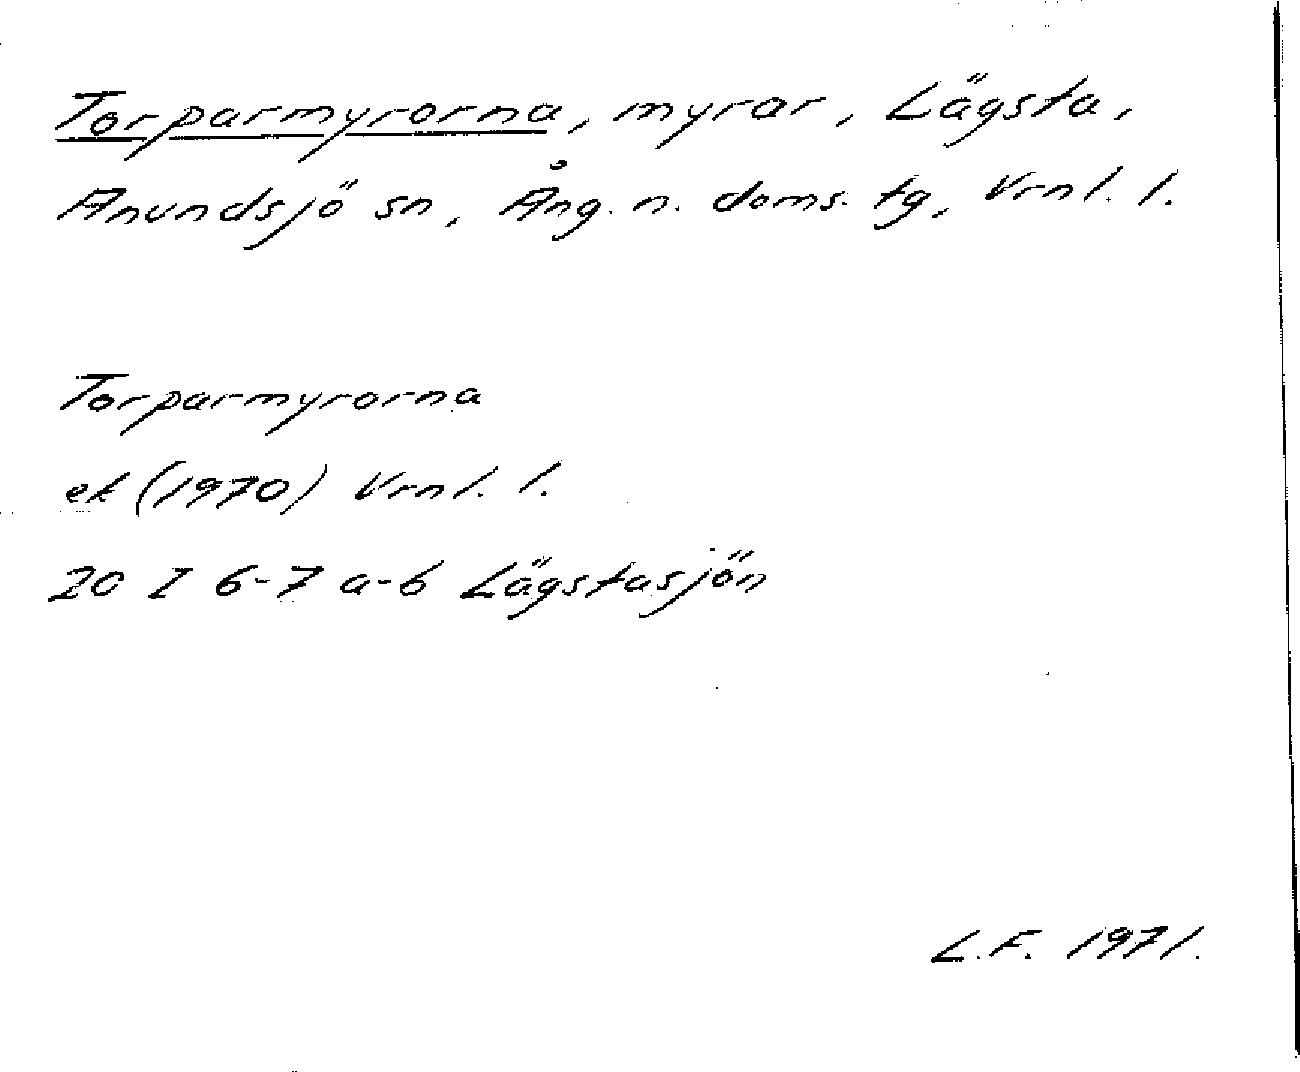 Torparmyrorna, myrar, Lägsta,
Anundsjö sn, Ång. n. doms. tg, Vrnl. l.
Torparmyrorna
ek (1970) Vrnl. l.
20 I 6-7 a-b Lägstasjön
L.F. 1971.